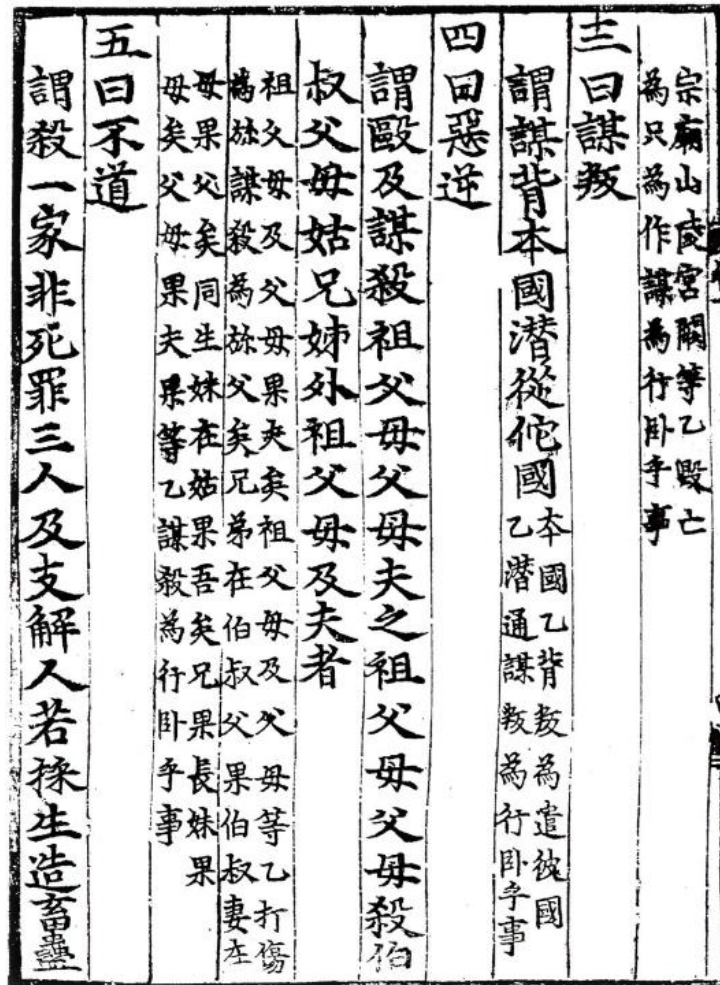 宗廟山陵宮闕等乙毀亡
為只為作謀為行卧乎事
三曰謀叛
謂謀背本國潛從佗國
本國乙背叛為遣彼國
乙潛通謀叛為行卧乎事
四曰惡逆
謂毆及謀殺祖父母父母夫之祖父母父母殺伯
叔父母姑兄姊外祖父母及夫者
祖父母及父母果夫矣祖父母及父母等乙打傷
為旀謀殺為旀父矣兄弟在伯叔父果伯叔妻在
母果父矣同生妹在姑果吾矣兄果長妹果
母矣父母果夫果等乙謀殺為行卧乎事
五曰不道
謂殺一家非死罪三人及支解人若採生造畜蠱